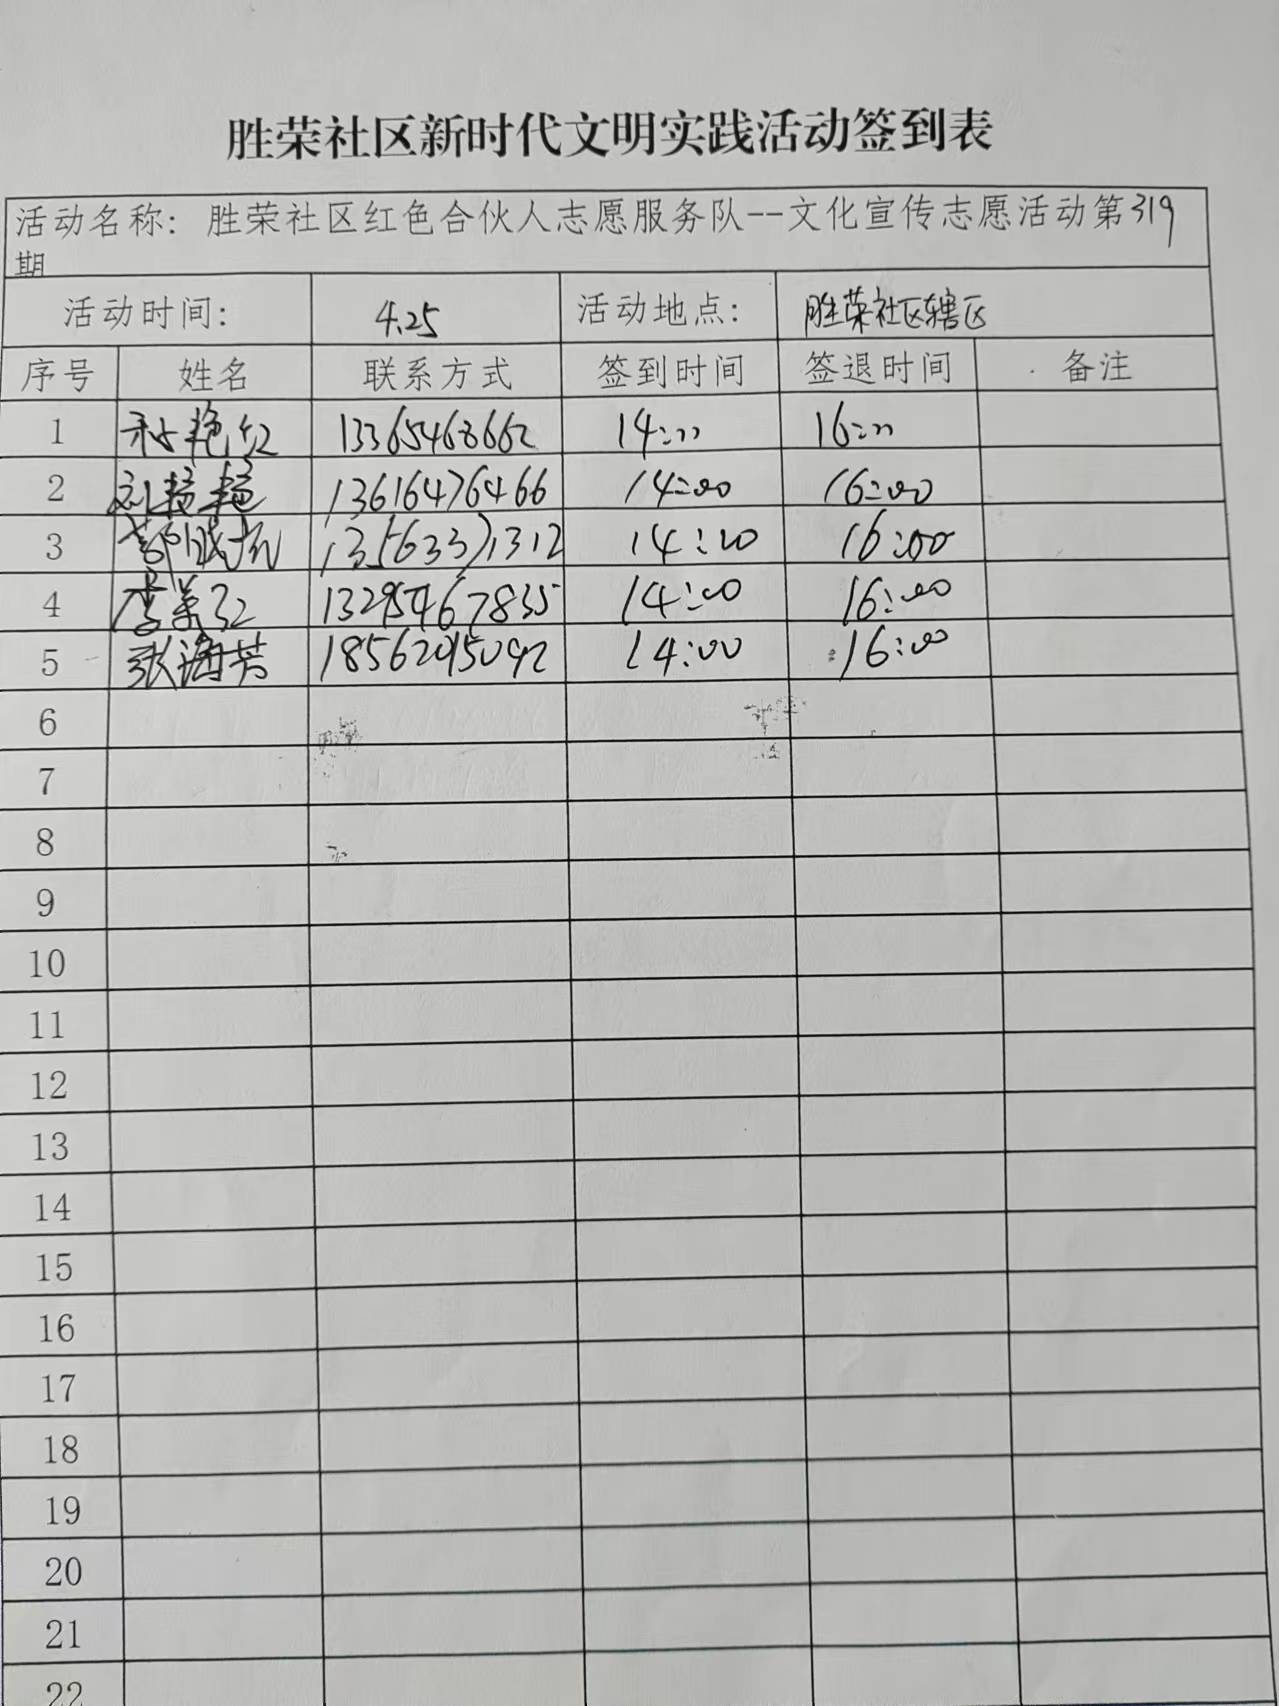 胜荣社区新时代文明实践活动签到表
活动名称: 胜荣社区红色合伙人志愿服务队--文化宣传志愿活动第319
期
活动时间: 4.25 活动地点: 胜荣社区辖区
序号 姓名 联系方式 签到时间 签退时间 备注
1 艳红 13365468662 14:00 16:00
2 刘艳艳 13616476466 14:00 16:00
3 13563371312 14:00 16:00
4 李美红 13295467835 14:00 16:00
5 张海芳 18562095092 14:00 16:00
6
7
8
9
10
11
12
13
14
15
16
17
18
19
20
21
22